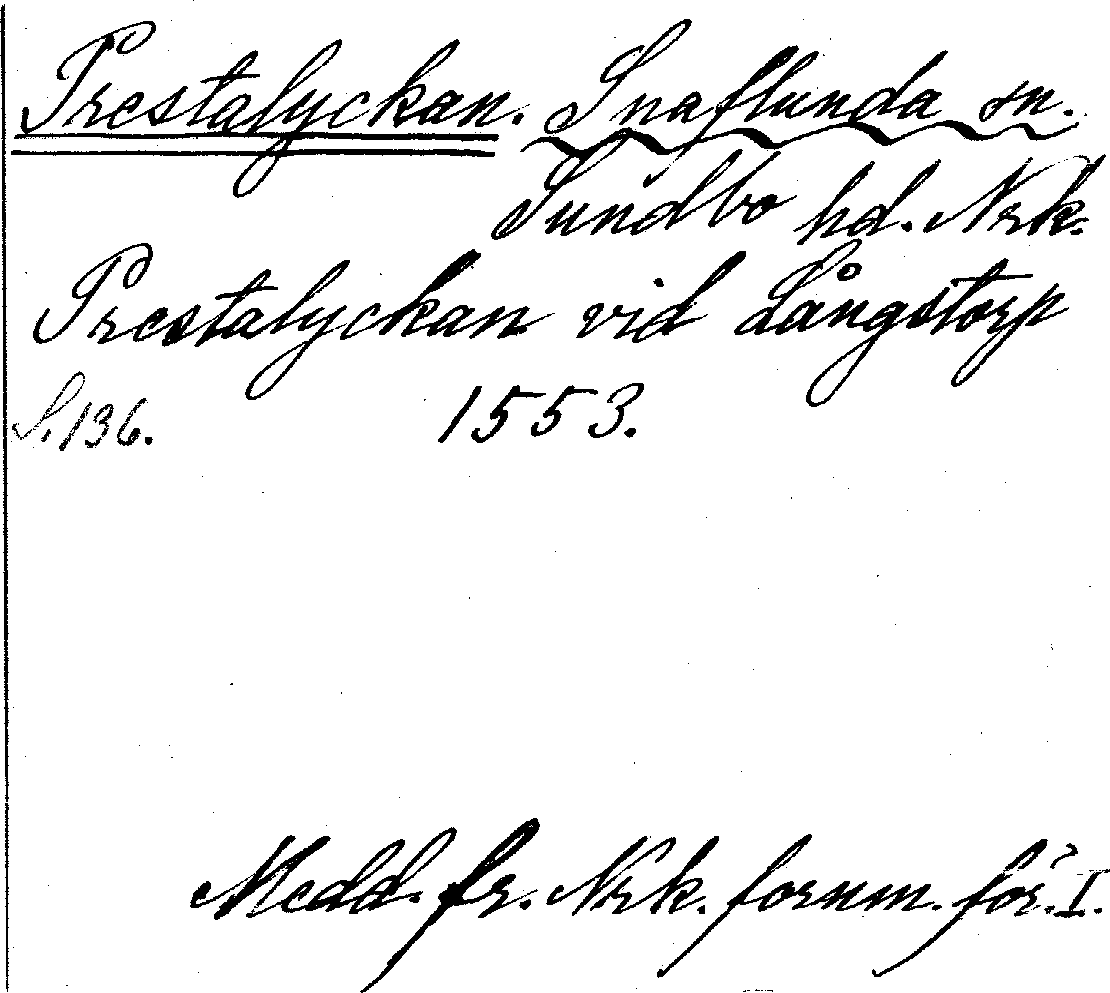 Prestalyckan. Snaflunda sn.
Sundbo hd. Nrk.
Prestalyckan vid Långstorp
S. 136. 1553.
Medd. fr. Nrk. fornm. för. I.